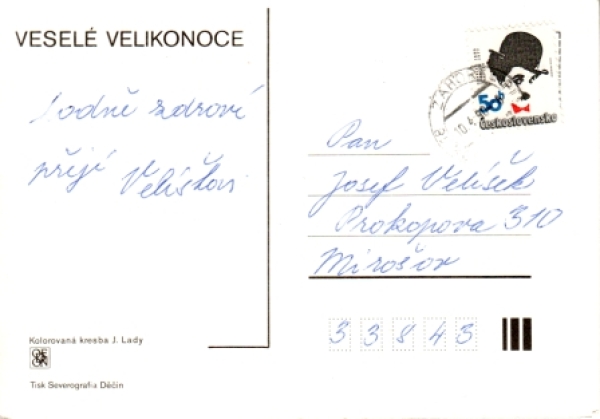 VESELÉ VELIKONOCE
hodně zdraví
přejí Velíškovi
Kolorovaná kresba J. Lady
Tisk Severografia Děčín
50h
Československo
10.4.
Pan
Josef Velíšek
Prokopova 310
Mirošov
33843